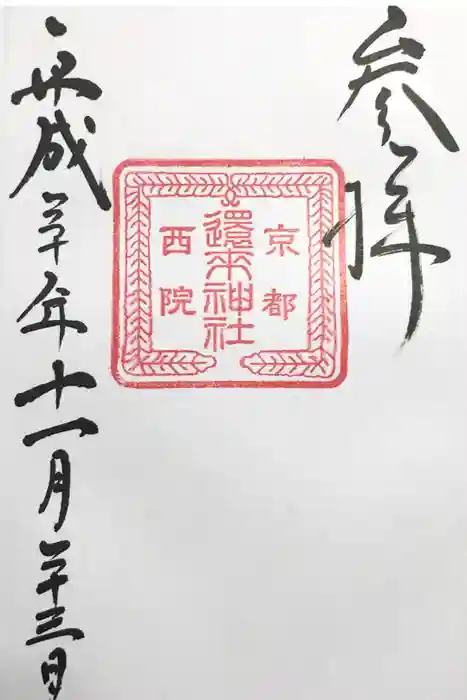 参拝
京都
還来神社
西院
平成三十年十一月二十三日